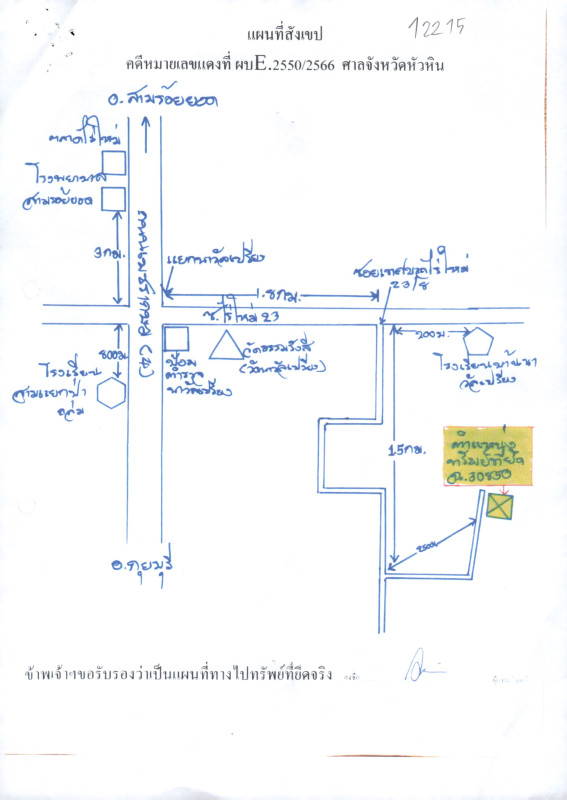 12215
แผนที่สังเขป
คดีหมายเลขแดงที่ ผบE.2550/2566 ศาลจังหวัดหัวหิน
อ.สามร้อยยอด
ตลาดไร่ใหม่
โรงพยาบาล
สามร้อยยอด
3กม.
ถนนเพชรเกษม
แยกนาวัลเปรียง
1.8กม.
ซอยเทศบาลไร่ใหม่
23/8
ซ.ไร่ใหม่ 23
800ม.
200ม.
โรงเรียน
สามแยกป่า
ถล่ม
ป้อม
ตำรวจ
นาวัลเปรียง
วัดธรรมรังสี
(วัดนาวัลเปรียง)
โรงเรียนบ้านนา
วัลเปรียง
1.5กม.
ตำแหน่ง
ทรัพย์ที่ยึด
ฉ.30850
250ม.
อ.กุยบุรี
ข้าพเจ้าฯขอรับรองว่าเป็นแผนที่ทางไปทรัพย์ที่ยึดจริง